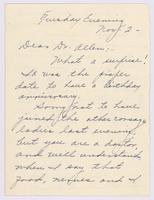 Tuesday Evening
Nov. 2 -
Dear Dr. Allen:-
What a surprise!
It was the proper
date to have a birthday
anniversary.
Sorry not to have
joined the other corsage
ladies last evening.
But you are a doctor,
and will understand
when I say that
food, nerves and I